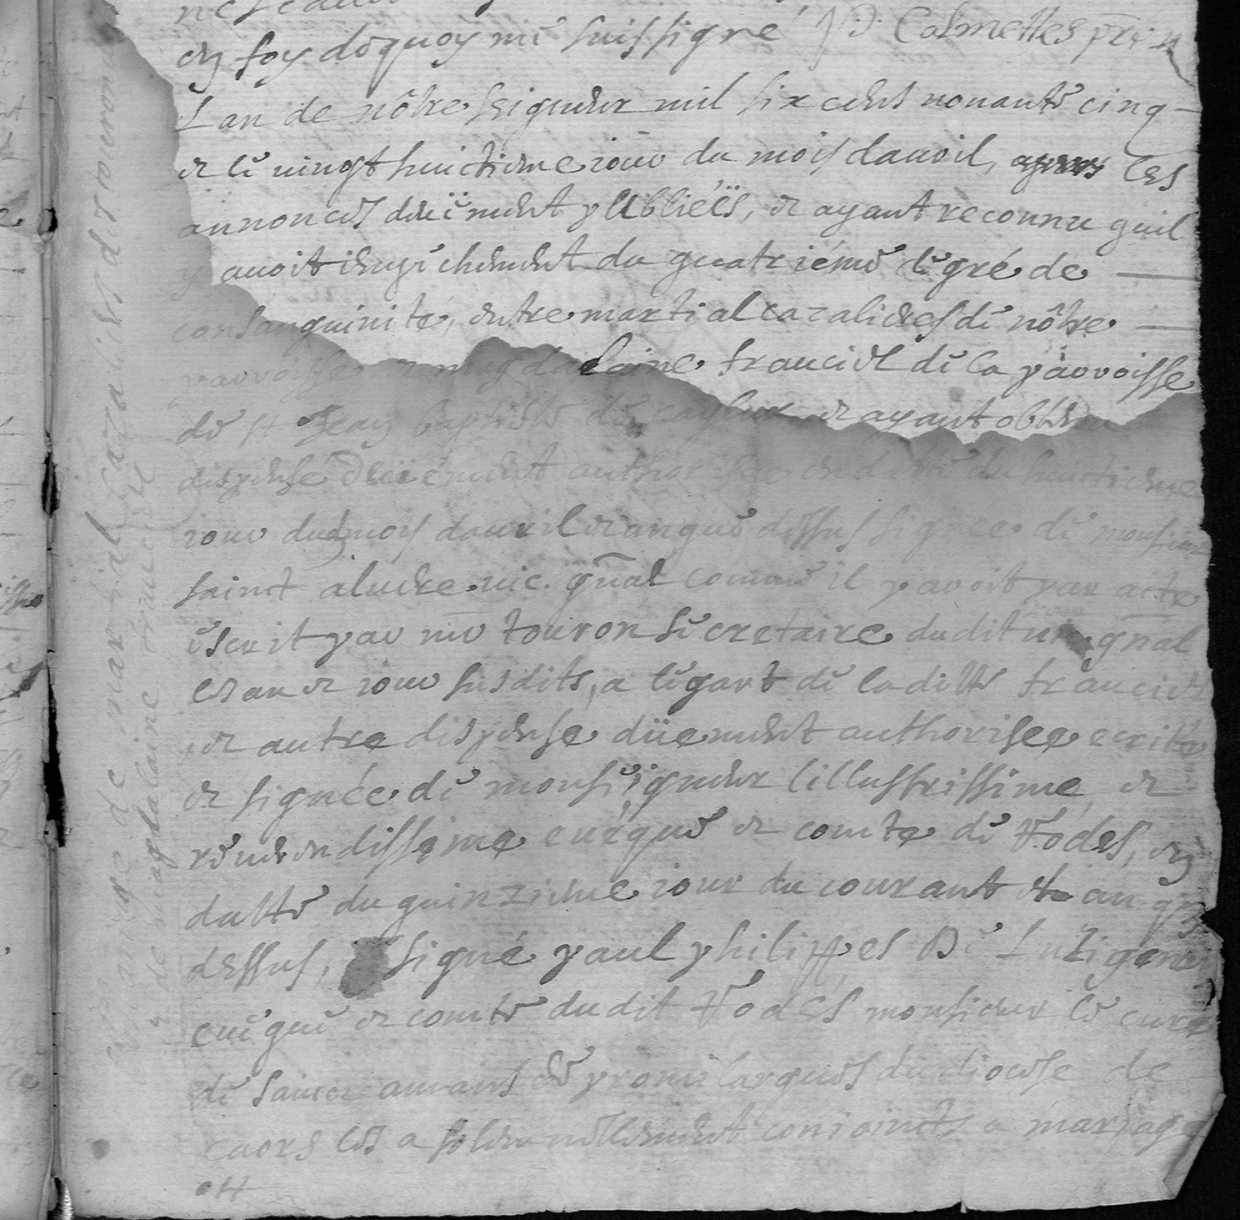 en foy dequoy me suis signé Calmettes
Lan de nôtre seigneur mil six cens nonante cinq
et le vingt huictieme iour du mois davril, apres les
annonces deüement publiéës, et ayant reconnu quil
y avoit empechement du quatriéme degré de
consanguinité, entre martial cazalieres de nôtre
parroisse et magdelaine francieres de la parroisse
de st Jean baptiste de et ayant obtenu
dispense deüement du huictieme
iour dud mois davril et an que dessus signee de monsieur
sainct vic. gñal comme il y avoit par acte
escrit par me touron secretaire dudit vic. gñal
les an et iour susdits, a legart de laditte
et autre dispense düement authorisee ecritte
et signée de monseigneur lillustrissime et
reverendissime evéque et comte de Rodes, en
datte du quinzieme iour du courant et an que
dessus, signé paul philippes De Luzignen
evêque et comte dudit Rodés monsieur le curé
de du diocese de
caors les a solemnellement conioincts a mariage
mariage de martial Cazalieres et
et de magdelaine